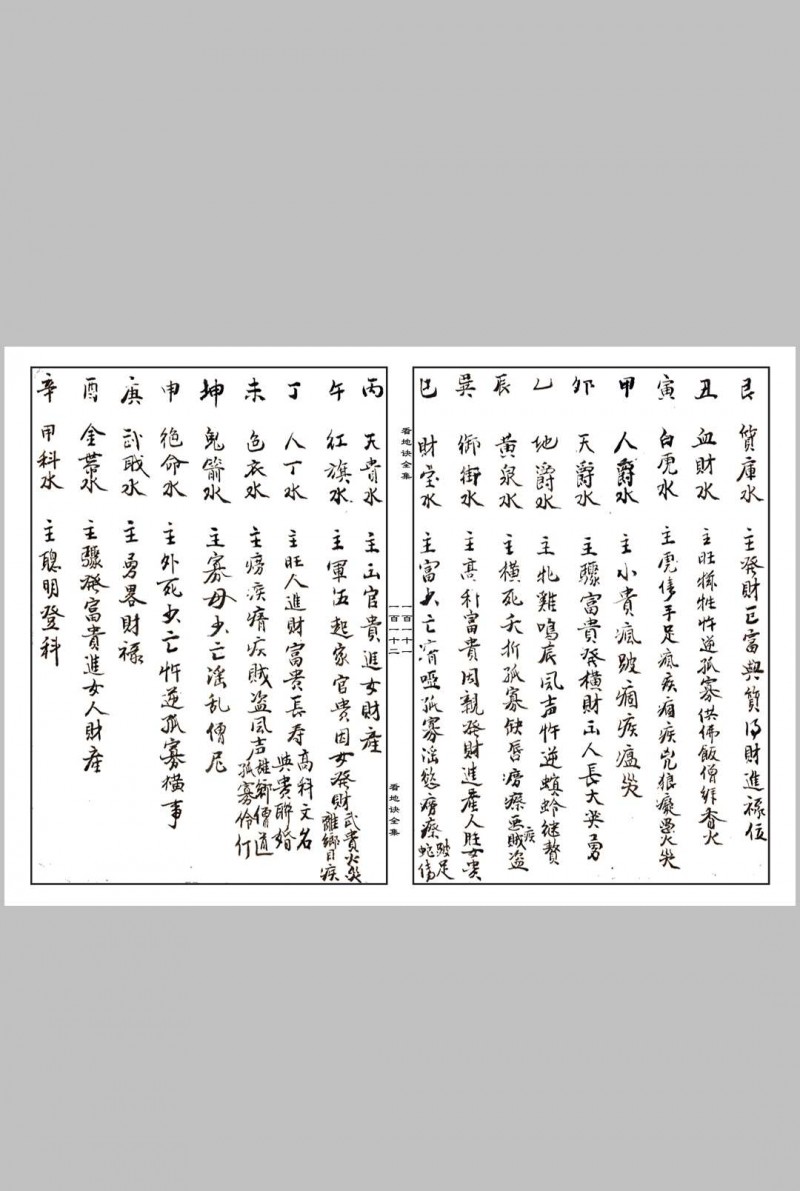 艮 貨庫水 主發財巨富典質得財進祿位
丑 血財水 主旺犠牲忤逆孤寡供佛飯僧絆香火
寅 白虎水 主虎傷手足瘋疾痼疾兇狼癡愚火災
甲 人爵水 主小貴瘋跛痼疾瘟災
卯 天爵水 主驟富貴發橫財出人長大英勇
乙 地爵水 主牝雞鳴晨風声忤逆螟蛉继贅
辰 黃泉水 主橫死夭折孤寡缺唇癆瘵惡疾賊盜
巽 御街水 主髙科富貴因親發財進產人旺女貴
巳 財宝水 主富少亡瘖啞孤寡淫慾癆瘵跛足蛇傷
看地诀全集
一百一十一
一百一十二
看地诀全集
丙 天貴水 主出官貴進女財產
午 紅旗水 主軍伍起家官貴因女發財武貴火災離鄉目疾
丁 人丁水 主旺人進財富贵長寿髙科文名與貴聯婚
未 色衣水 主癆疾瘠疾賊盗風声離鄉僧道孤寡伶仃
坤 鬼箭水 主寡母少亡淫乱僧尼
申 絕命水 主外死少亡忤逆孤寡橫事
庚 武職水 主勇畧財禄
酉 金帶水 主驟發富貴進女人財產
辛 甲科水 主聰明登科